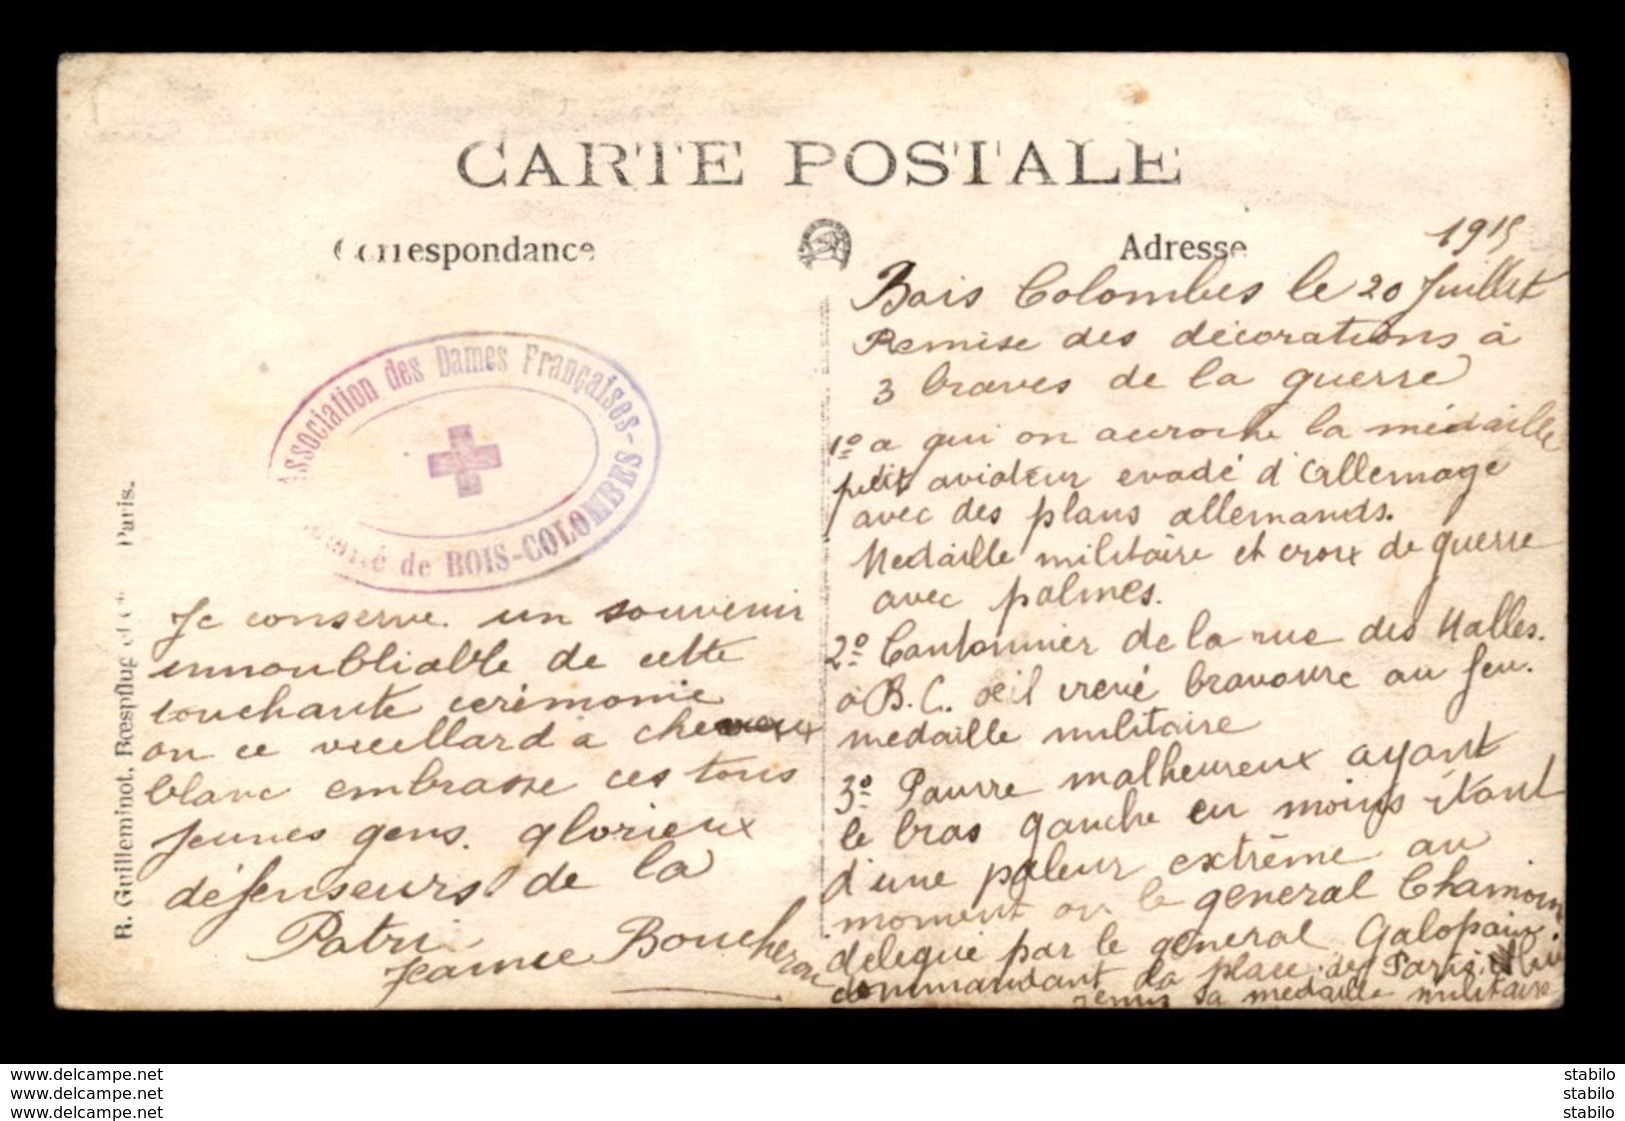 CARTE POSTALE
Correspondance
Adresse
Association des Dames Françaises
Comité de BOIS-COLOMBES
R. Guilleminot, Bœspflug et Cie Paris.
1915
Bois Colombes le 20 Juillet
Remise des décorations à
3 braves de la guerre
1º a qui on accroche la médaille
petit aviateur evadé d'Allemage
avec des plans allemands.
Medaille militaire et croix de guerre
avec palmes.
2º Cantonnier de la rue des Halles.
à B.C. œil crevé bravoure au feu.
medaille militaire
3º Pauvre malheureux ayant
le bras gauche en moins étant
d'une paleur extrême au
moment ou le general Chamoin
delegué par le general Galopain
commandant la place de Paris, lui
remis sa medaille militaire
Je conserve un souvenir
innoubliable de cette
touchante cerémonie
ou ce vieillard a cheveux
blanc embrasse ces tous
jeunes gens. glorieux
défenseurs de la
Patri
Jeanne Boucheron
www.delcampe.net
www.delcampe.net
www.delcampe.net
stabilo
stabilo
stabilo